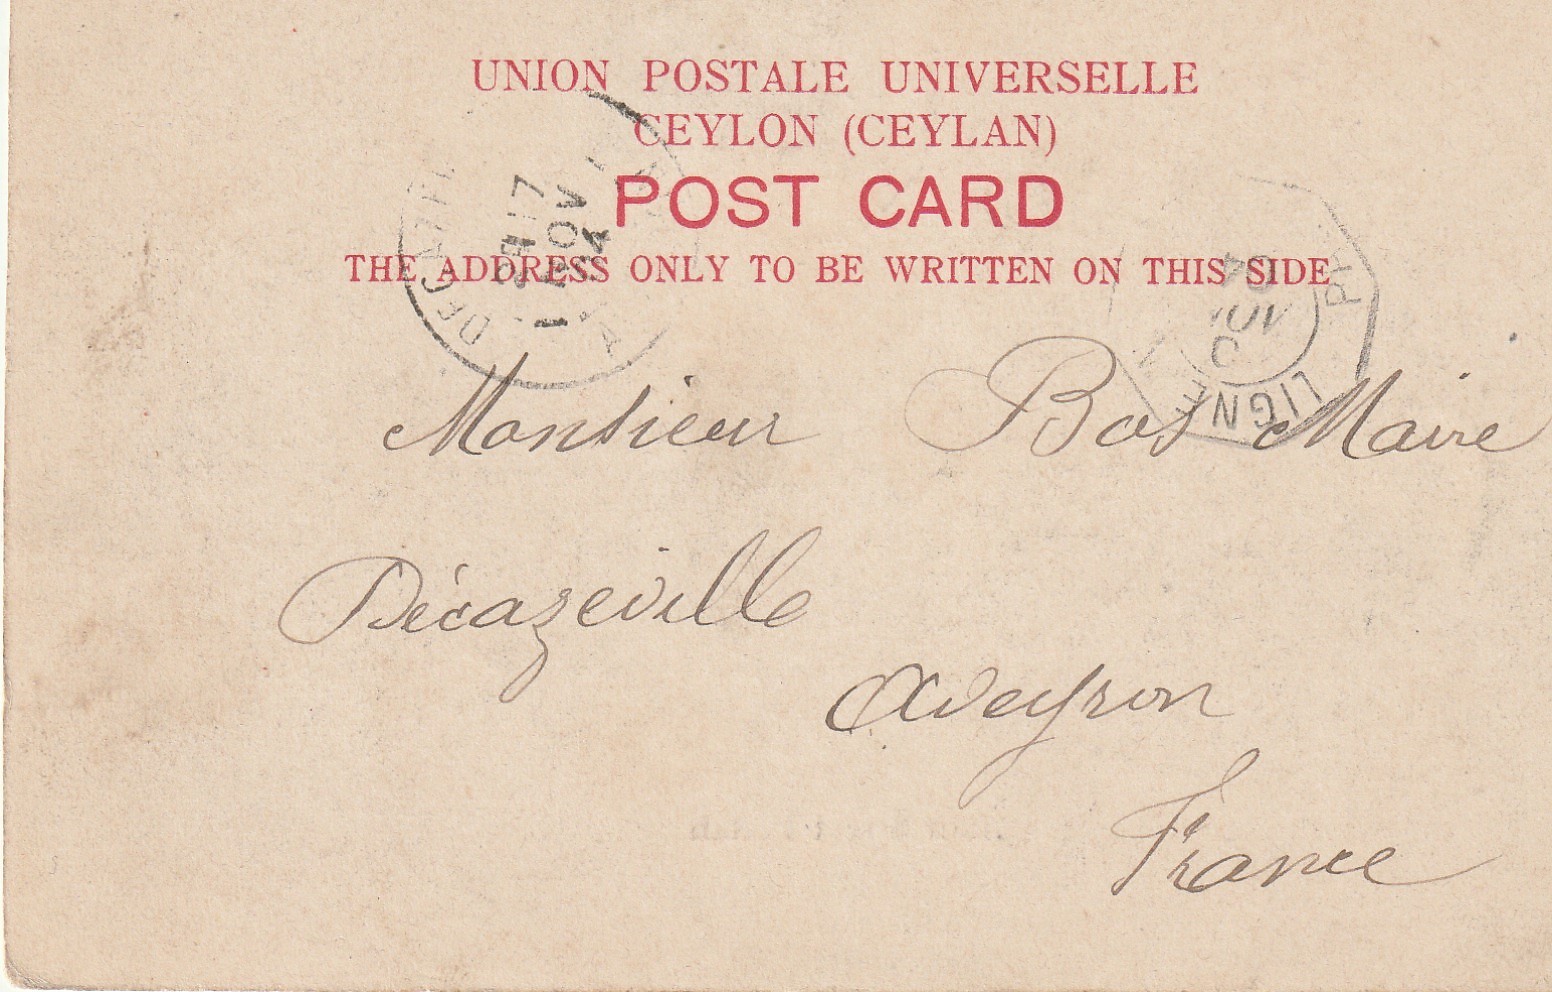 UNION POSTALE UNIVERSELLE
CEYLON (CEYLAN)
POST CARD
THE ADDRESS ONLY TO BE WRITTEN ON THIS SIDE
LIGNE
Monsieur Bos Maire
Décazeville
Aveyron
France